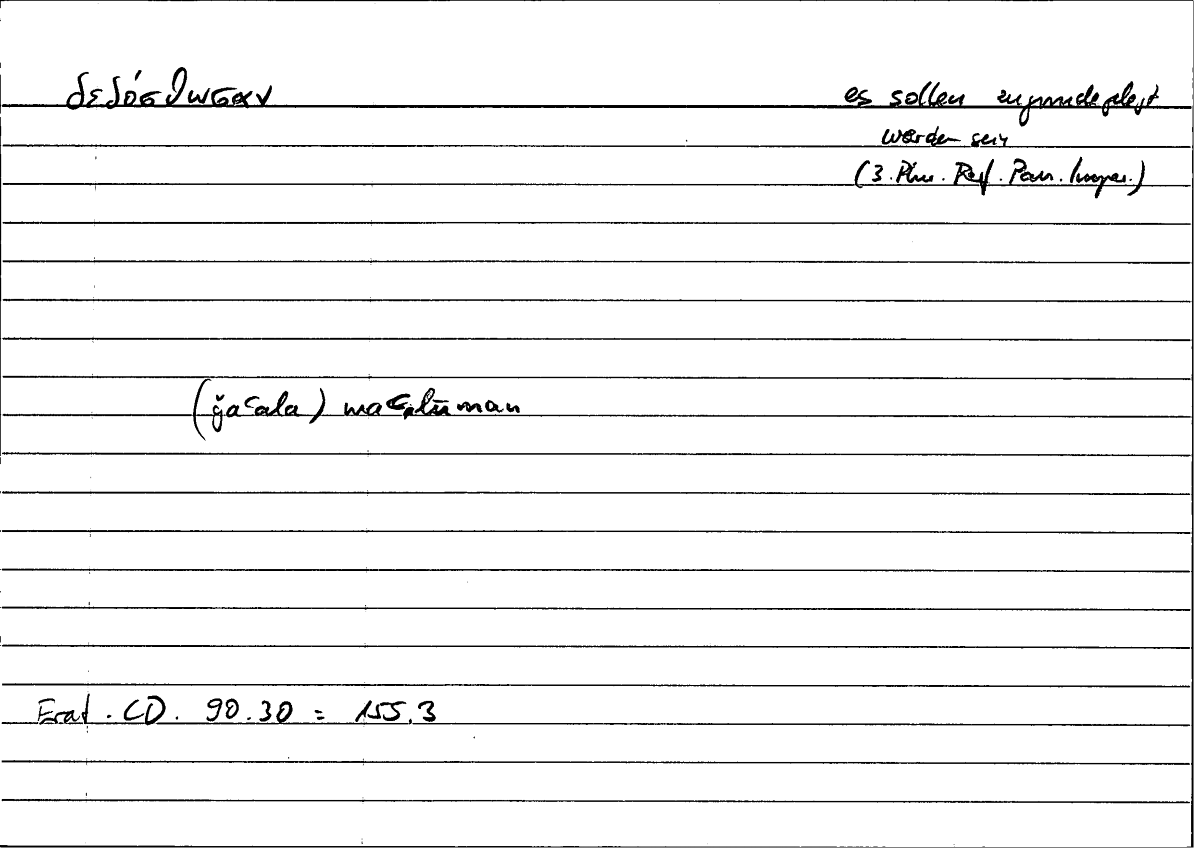 δεδόσθωσαν
es sollen zugrundegelegt
worden sein
(3. Plur. Perf. Pass. Imper.)
(ǧaʿala) maʿlūman
Erat. CD. 90.30 = 155.3